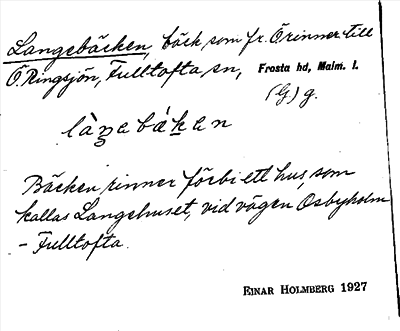 Langebäcken, bäck som fr. Ö rinner till
Ö. Ringsjön, Fulltofta sn, Frosta hd, Malm. l.
(G.) g.
làŋebáken
Bäcken rinner förbi ett hus, som
kallas Langehuset, vid vägen Osbyholm
– Fulltofta.
EINAR HOLMBERG 1927